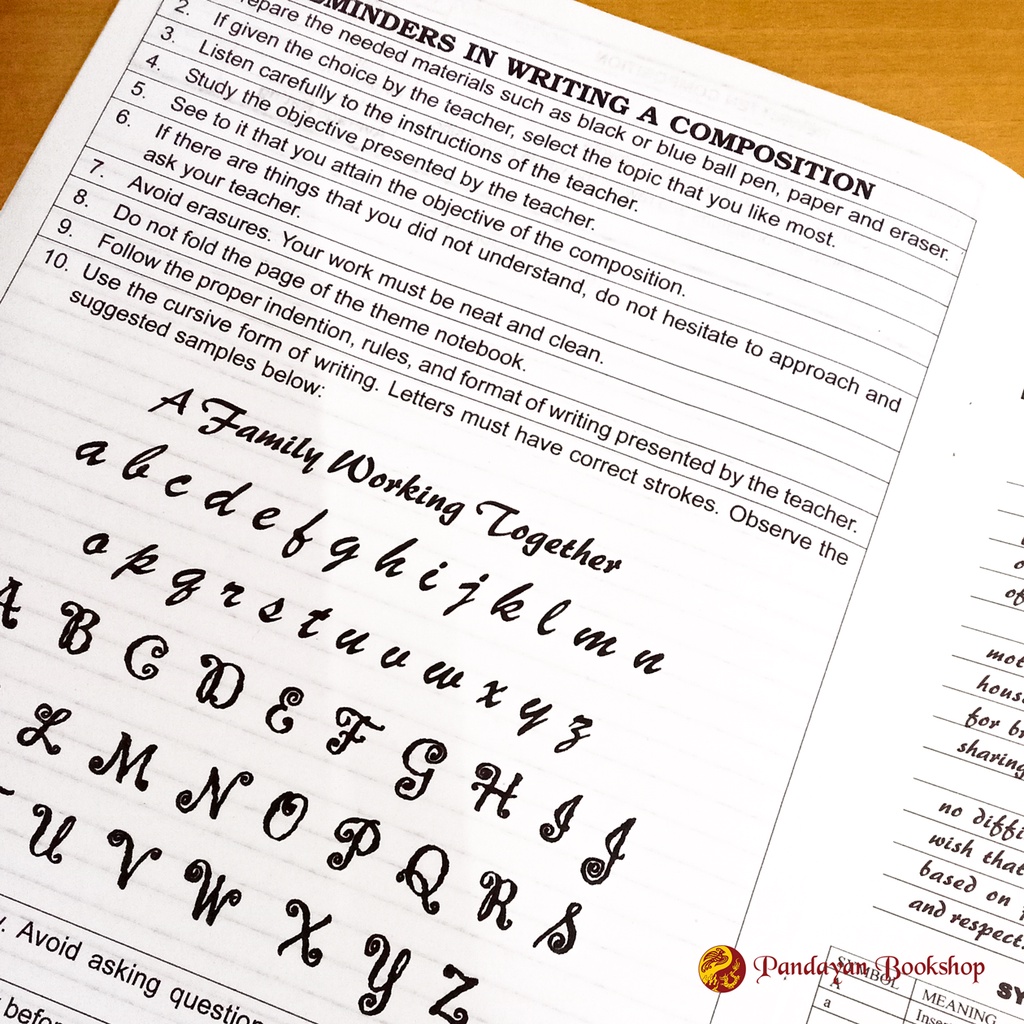 REMINDERS IN WRITING A COMPOSITION
repare the needed materials such as black or blue ball pen, paper and eraser.
2. If given the choice by the teacher, select the topic that you like most.
3. Listen carefully to the instructions of the teacher.
4. Study the objective presented by the teacher.
5. See to it that you attain the objective of the composition.
6. If there are things that you did not understand, do not hesitate to approach and
ask your teacher.
7. Avoid erasures. Your work must be neat and clean.
8. Do not fold the page of the theme notebook.
9. Follow the proper indention, rules, and format of writing presented by the teacher.
10. Use the cursive form of writing. Letters must have correct strokes. Observe the
suggested samples below:
A Family Working Together
a b c d e f g h i j k l m n
o p q r s t u v w x y z
A B C D E F G H I J
L M N O P Q R S
U V W X Y Z
Avoid asking question
before
of
mot
hous
for br
sharing
no diffi
wish that
based on
and respect
SY
SYMBOL MEANING
a
Pandayan Bookshop